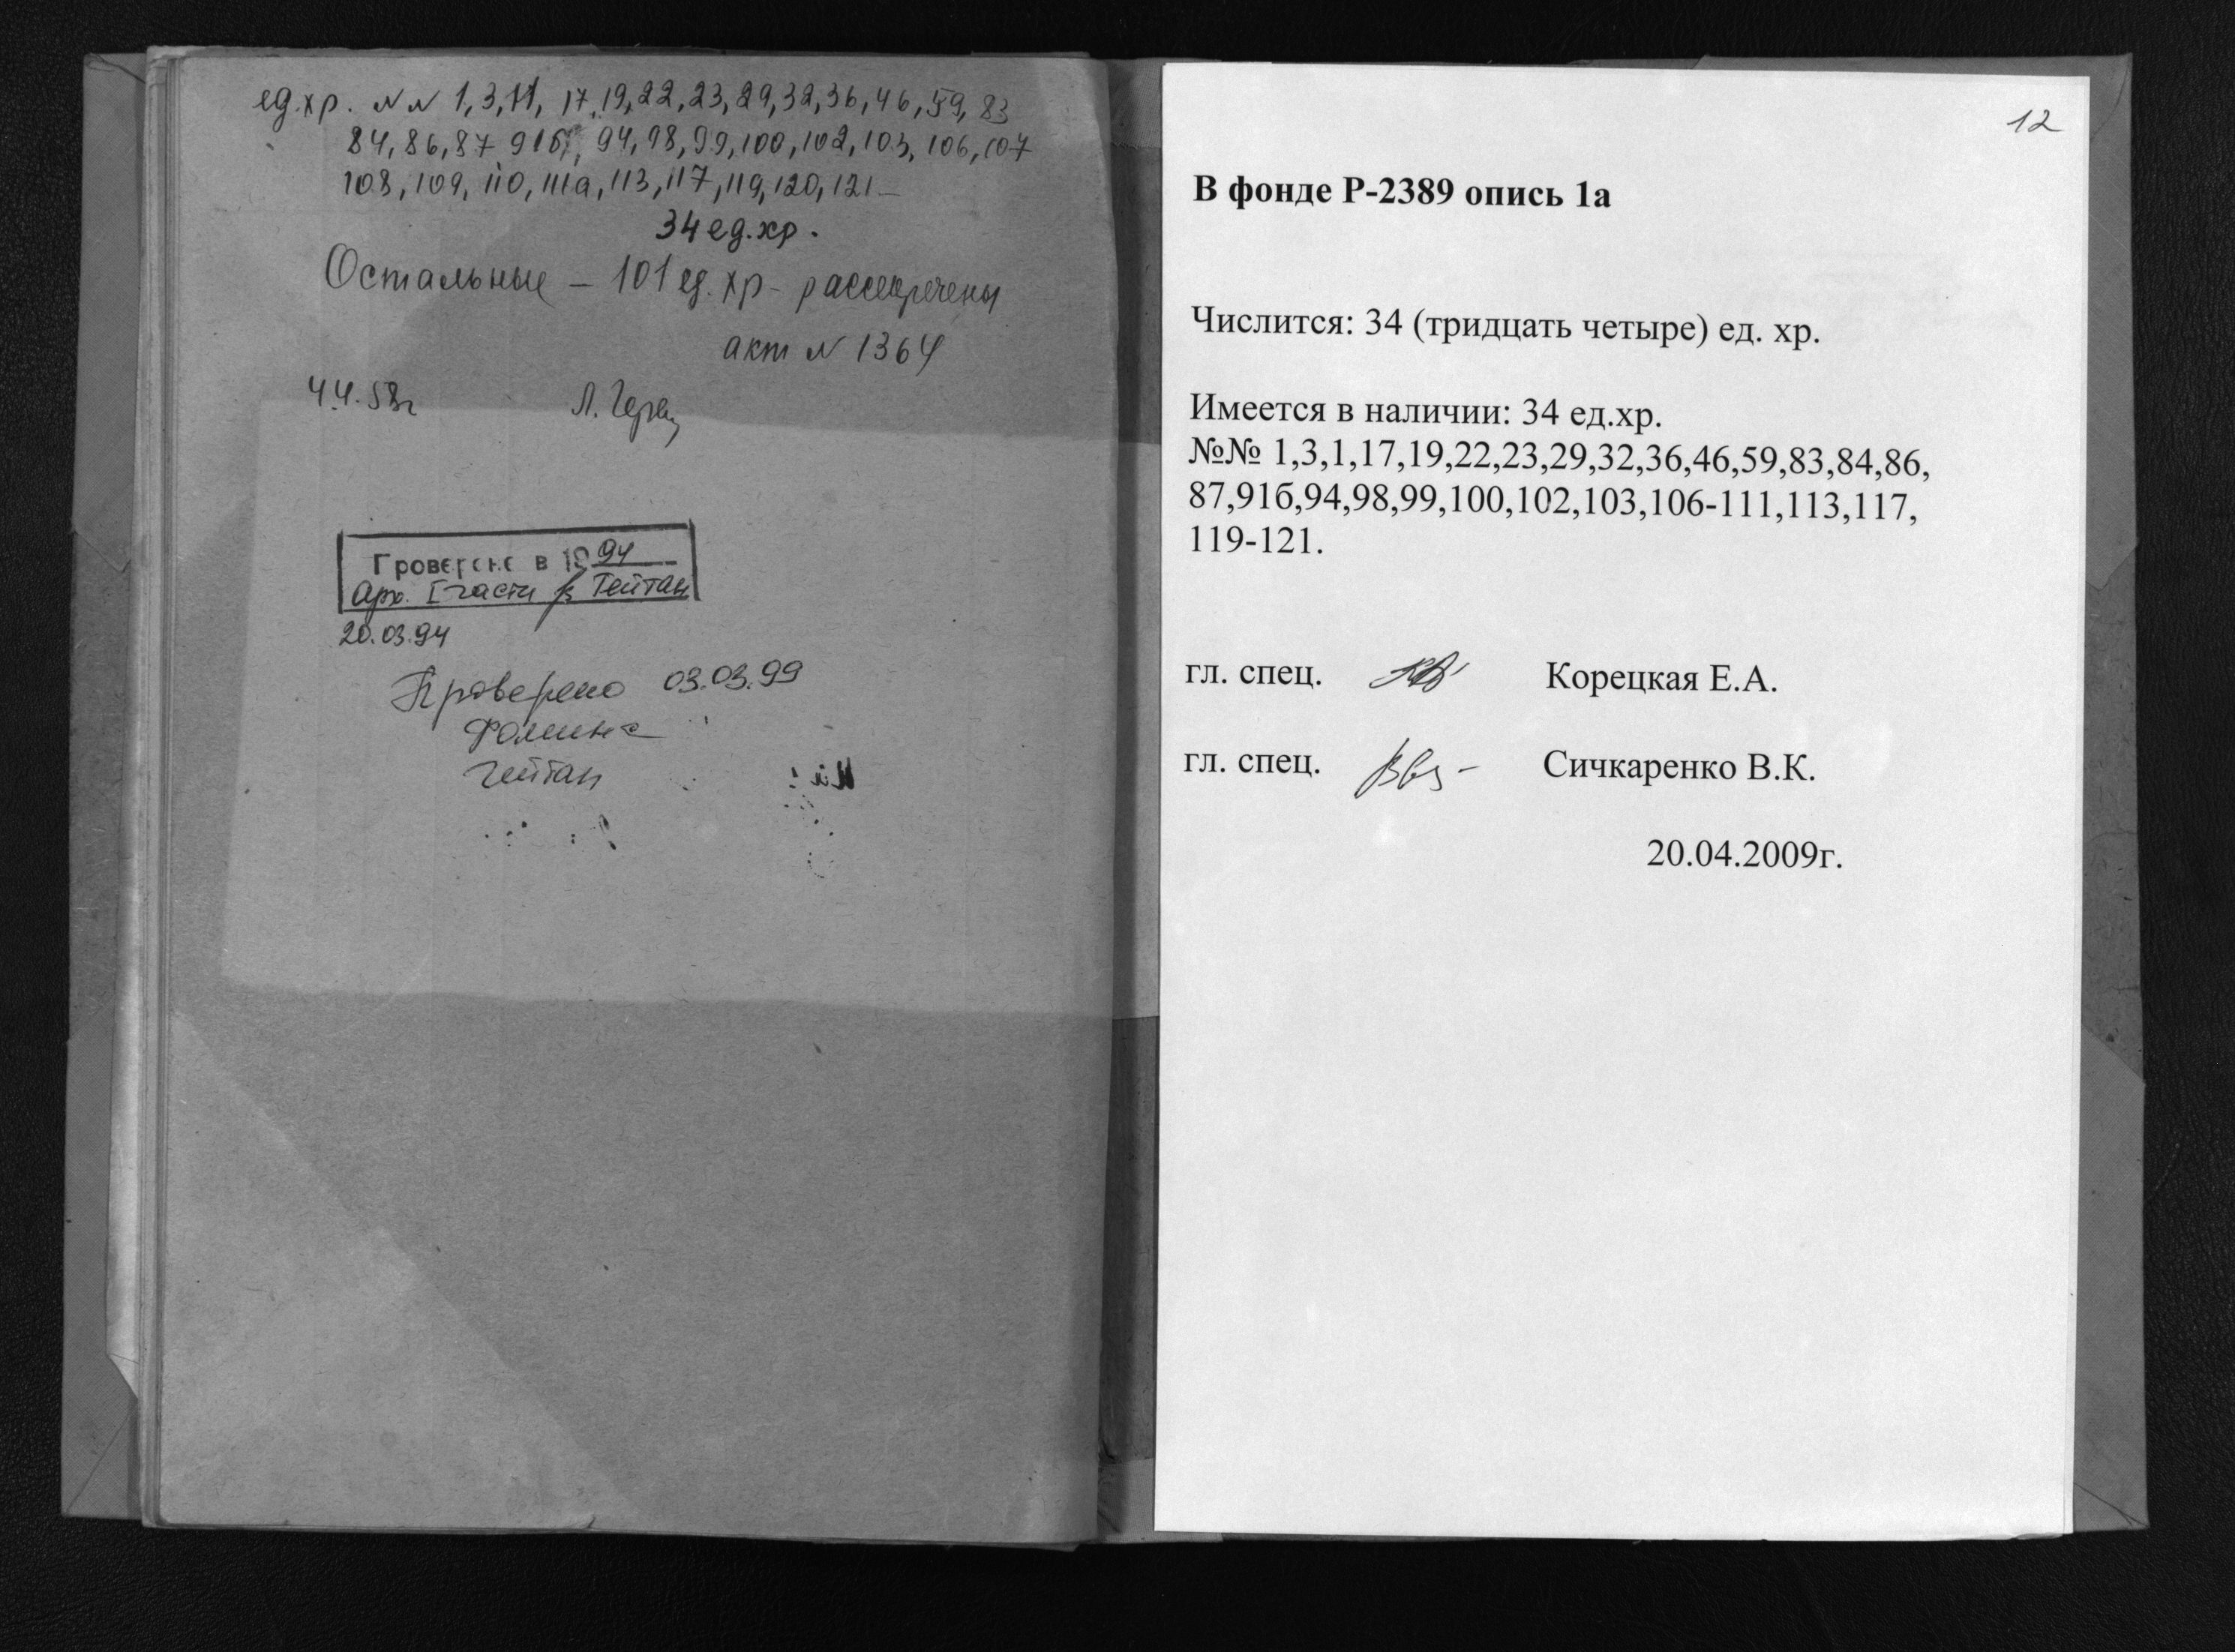 ед.хр. N N 1,3,11, 17,19,22,23,29,32,36,46,59,83
84,86,87 91б, 94,98,99,100,102,103,106,107
108,109,110,111а,113,117,119,120,121-
34 ед.хр.
Остальные - 101 ед. хр - рассекречены
акт N 1364
4.4.58г Л.
Проверено в 1994
Арх. I части Гейтан
20.03.94
Проверено 03.03.99
Фомина
Гейтан
12
В фонде Р-2389 опись 1а
Числится: 34 (тридцать четыре) ед. хр.
Имеется в наличии: 34 ед.хр.
№№ 1,3,1,17,19,22,23,29,32,36,46,59,83,84,86,
87,91б,94,98,99,100,102,103,106-111,113,117,
119-121.
гл. спец. Корецкая Е.А.
гл. спец. Сичкаренко В.К.
20.04.2009г.